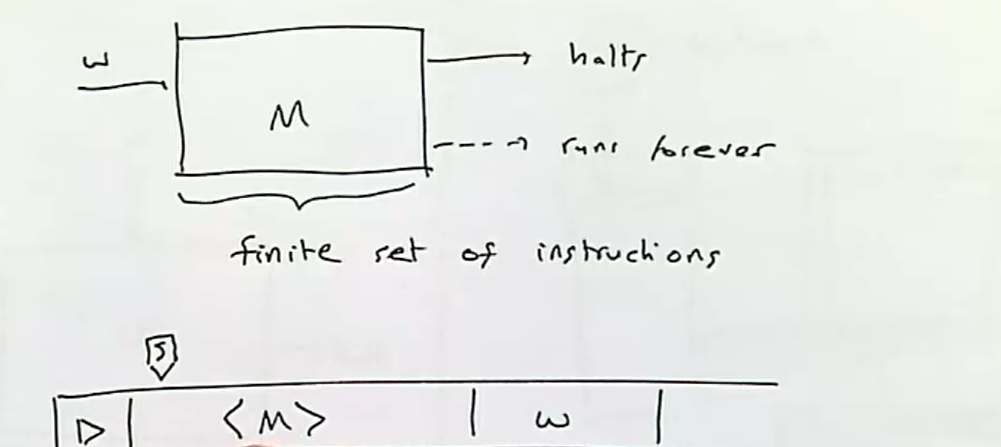 w M halts
runs forever
finite set of instructions
S
▷ | <M> | w |